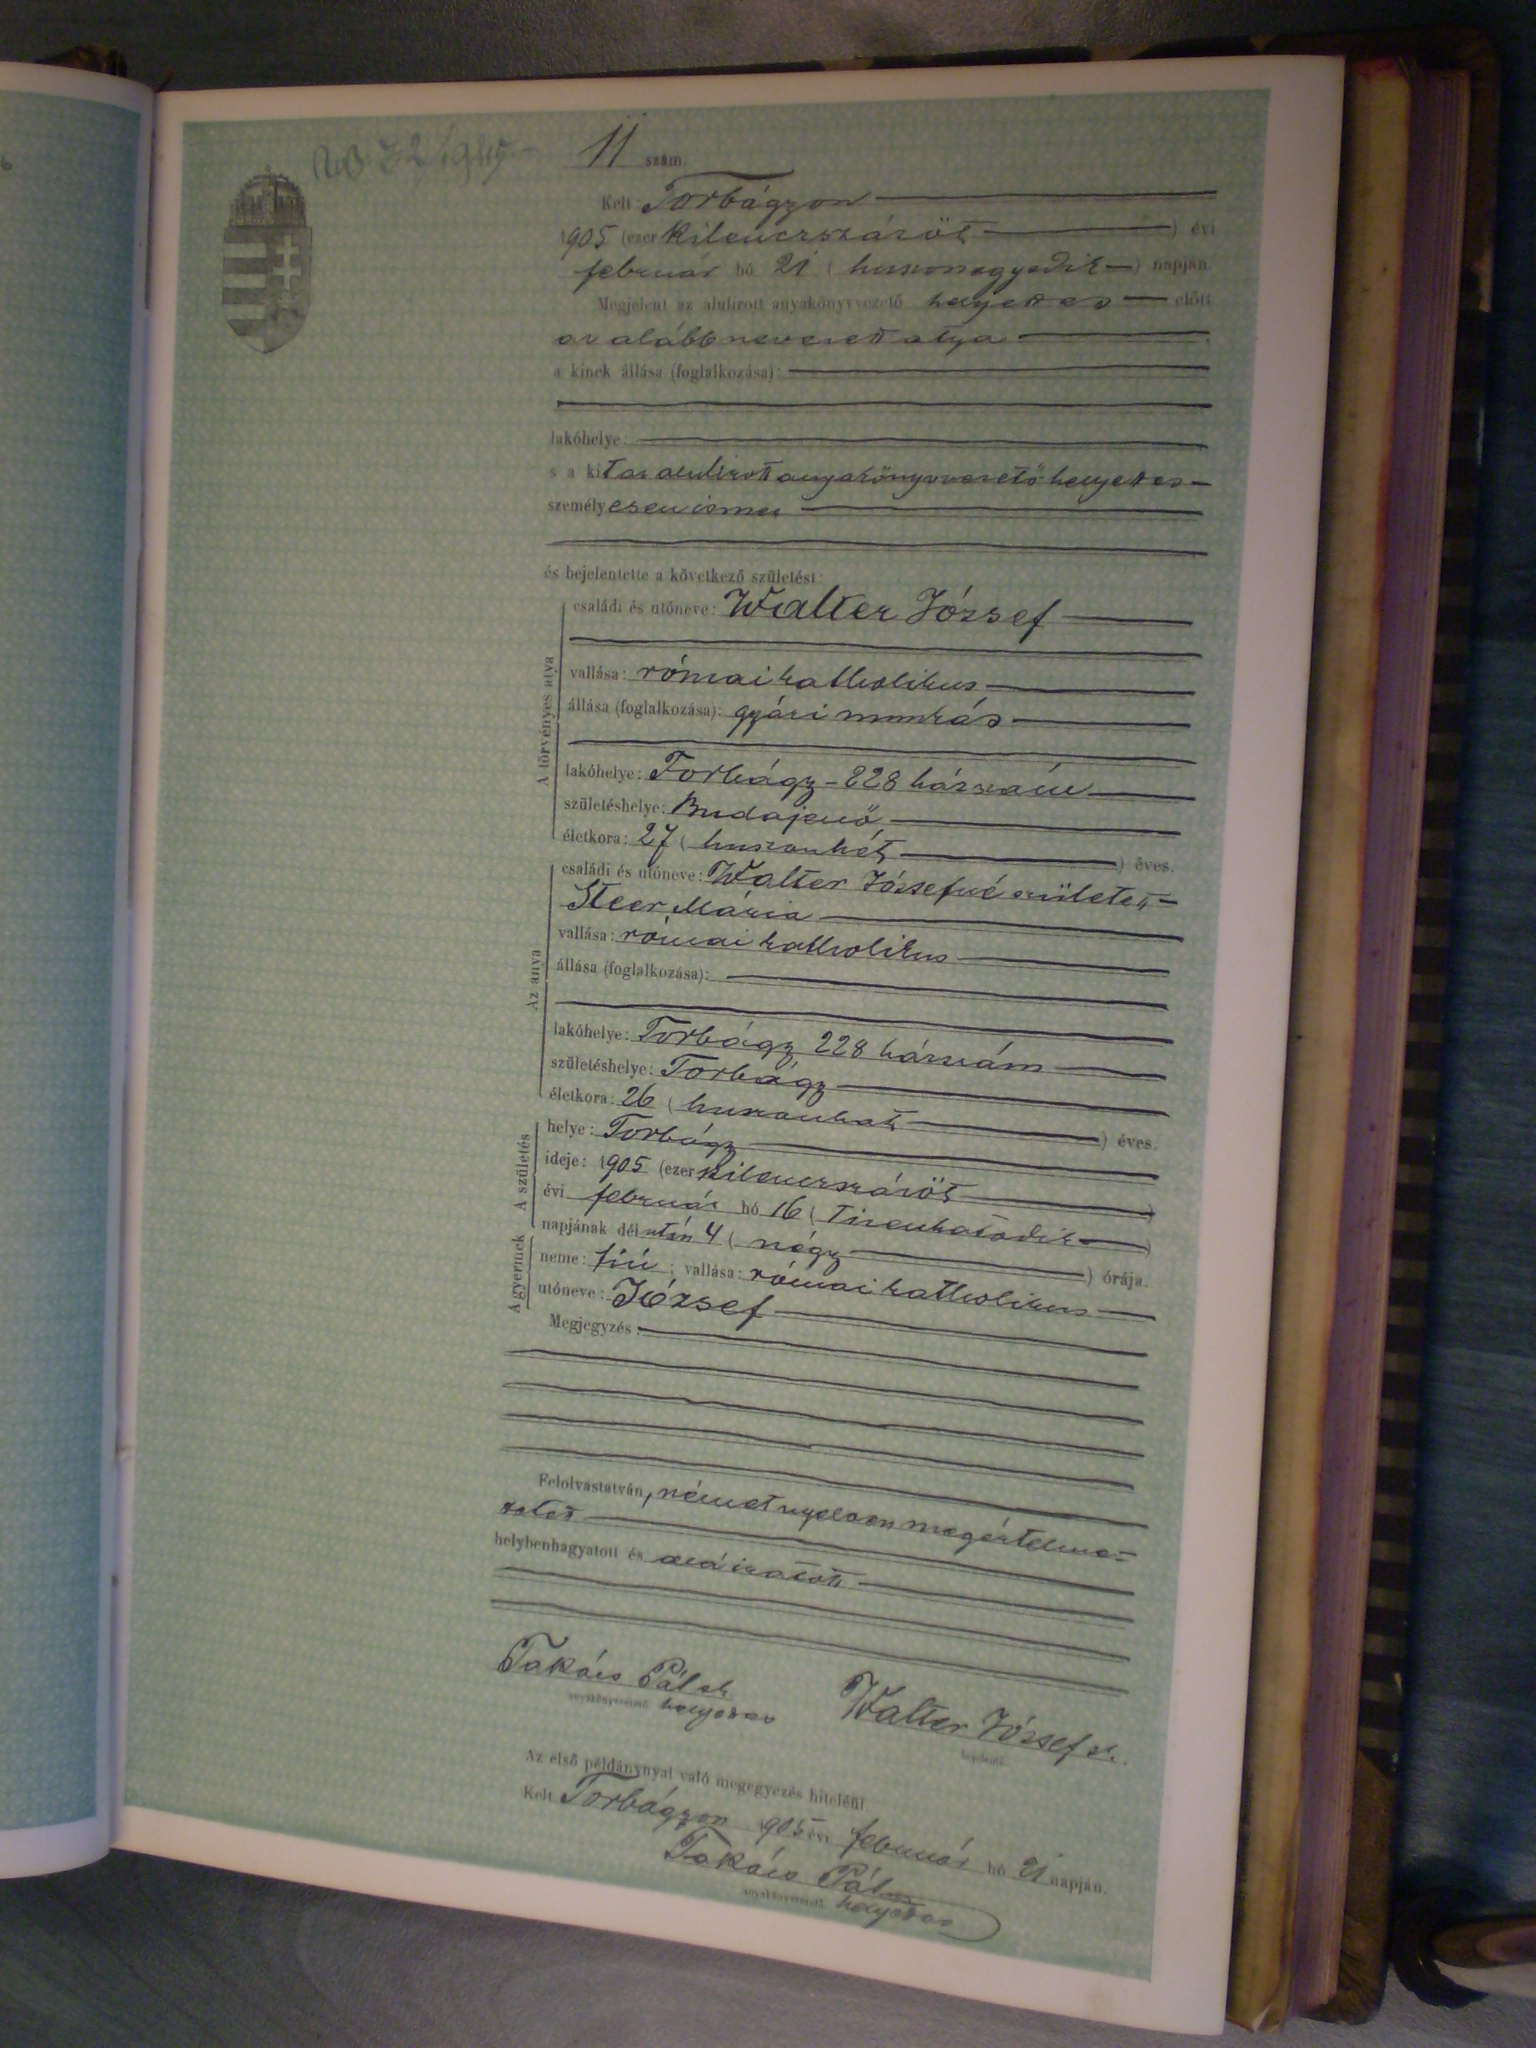 11 szám.
Kelt: Torbágyon
1905 (ezer kilenczszázöt) évi
február hó 21 (huszonegyedik) napján.
Megjelent az alulirott anyakönyvvezető helyettes előtt
az alább nevezett atya
a kinek állása (foglalkozása):
lakóhelye:
s a kit az alulirott anyakönyvvezető helyettes
személyesen ismer
és bejelentette a következő születést:
A törvényes atya
családi és utóneve: Walter József
vallása: római katholikus
állása (foglalkozása): gyári munkás
lakóhelye: Torbágy - 228 házszám
születéshelye: Budajenő
életkora: 27 (huszonhét) éves.
Az anya
családi és utóneve: Walter Józsefné született
Steer Mária
vallása: római katholikus
állása (foglalkozása):
lakóhelye: Torbágy 228 házszám
születéshelye: Torbágy
életkora: 26 (huszonhat) éves.
A születés
helye: Torbágy
ideje: 1905 (ezer kilenczszázöt)
évi február hó 16 (tizenhatodik)
napjának dél után 4 (négy) órája.
A gyermek
neme: fiú; vallása: római katholikus
utóneve: József
Megjegyzés:
Felolvastatván, német nyelven megértelme-
zetet
helybenhagyatott és aláiratott
Takács Pál sk
anyakönyvvezető helyettes
Walter József sk.
bejelentő.
Az első példánynyal való megegyezés hiteléül.
Kelt Torbágyon 1905 évi február hó 21 napján.
Takács Pál
anyakönyvvezető helyettes